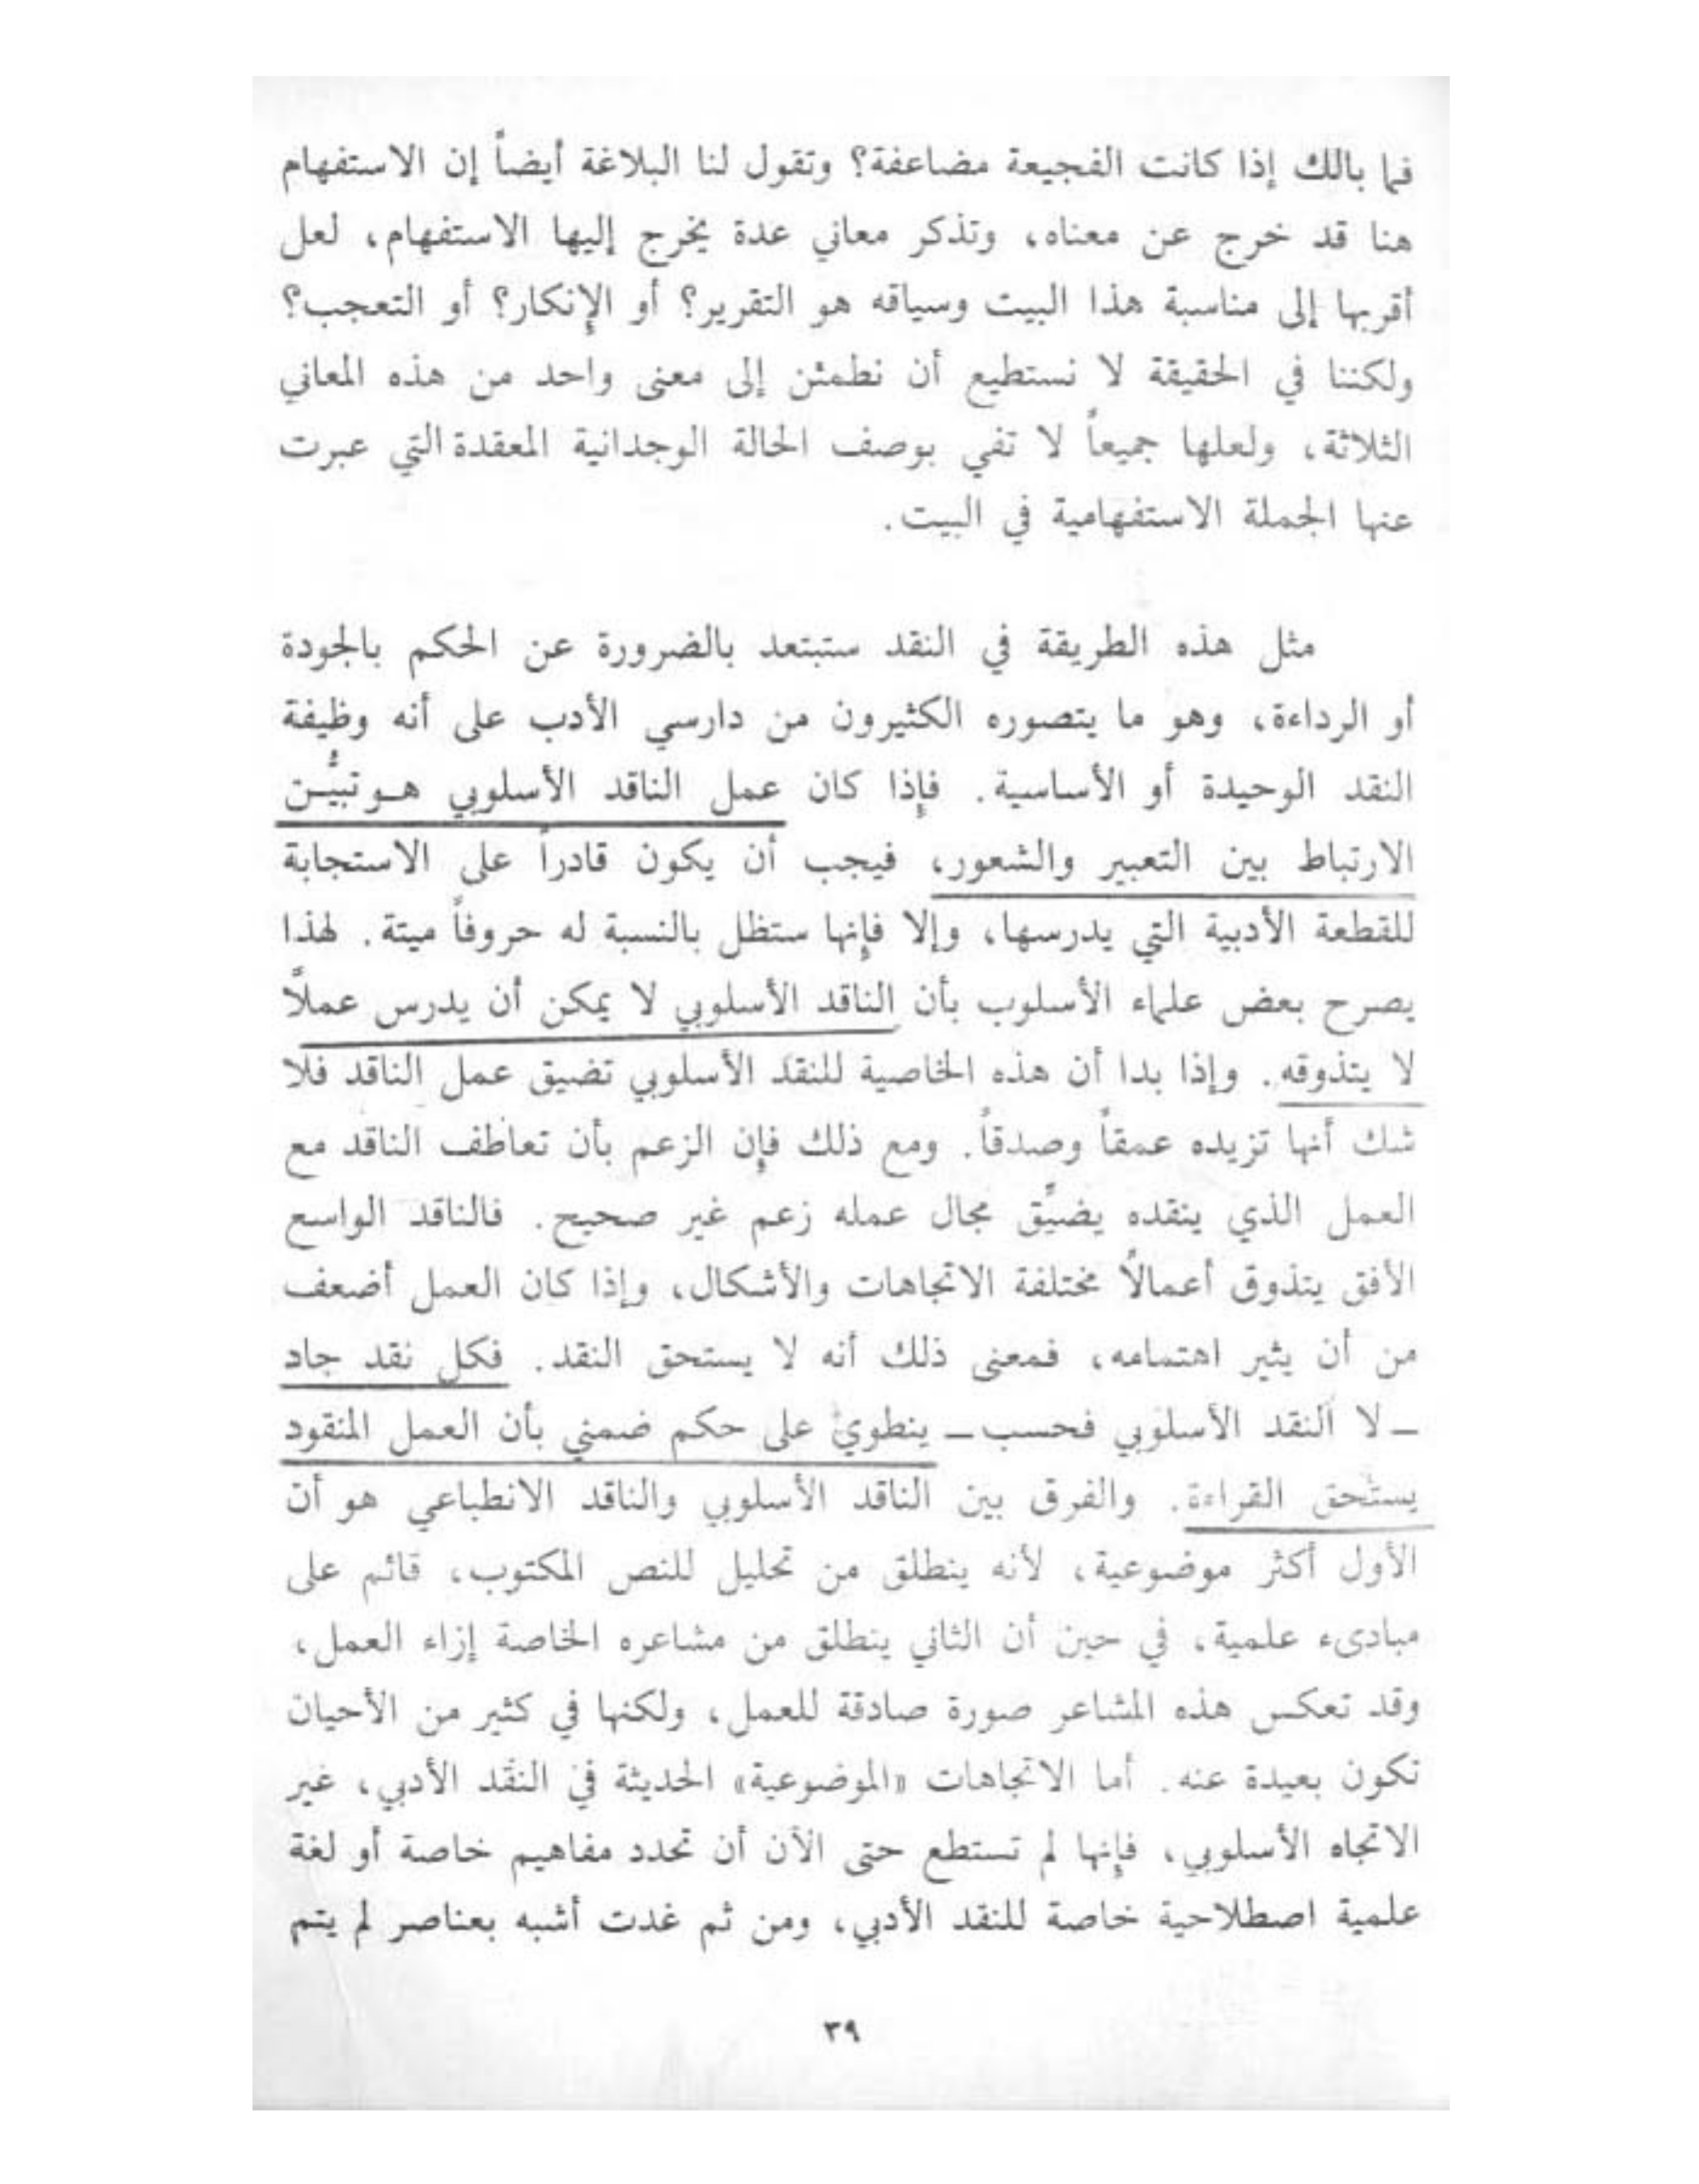 فما بالك إذا كانت الفجيعة مضاعفة؟ وتقول لنا البلاغة أيضاً إن الاستفهام
هنا قد خرج عن معناه، وتذكر معاني عدة يخرج إليها الاستفهام، لعل
أقربها إلى مناسبة هذا البيت وسياقه هو التقرير؟ أو الإنكار؟ أو التعجب؟
ولكننا في الحقيقة لا نستطيع أن نطمئن إلى معنى واحد من هذه المعاني
الثلاثة، ولعلها جميعاً لا تفي بوصف الحالة الوجدانية المعقدة التي عبرت
عنها الجملة الاستفهامية في البيت.
مثل هذه الطريقة في النقد ستبتعد بالضرورة عن الحكم بالجودة
أو الرداءة، وهو ما يتصوره الكثيرون من دارسي الأدب على أنه وظيفة
النقد الوحيدة أو الأساسية. فإذا كان عمل الناقد الأسلوبي هـو تبيُّـن
الارتباط بين التعبير والشعور، فيجب أن يكون قادراً على الاستجابة
للقطعة الأدبية التي يدرسها، وإلا فإنها ستظل بالنسبة له حروفاً ميتة. لهذا
يصرح بعض علماء الأسلوب بأن الناقد الأسلوبي لا يمكن أن يدرس عملاً
لا يتذوقه. وإذا بدا أن هذه الخاصية للنقد الأسلوبي تضيق عمل الناقد فلا
شك أنها تزيده عمقاً وصدقاً. ومع ذلك فإن الزعم بأن تعاطف الناقد مع
العمل الذي ينقده يضيِّق مجال عمله زعم غير صحيح. فالناقد الواسع
الأفق يتذوق أعمالاً مختلفة الاتجاهات والأشكال، وإذا كان العمل أضعف
من أن يثير اهتمامه، فمعنى ذلك أنه لا يستحق النقد. فكل نقد جاد
ـ لا النقد الأسلوبي فحسب ـ ينطوي على حكم ضمني بأن العمل المنقود
يستحق القراءة. والفرق بين الناقد الأسلوبي والناقد الانطباعي هو أن
الأول أكثر موضوعية، لأنه ينطلق من تحليل للنص المكتوب، قائم على
مبادىء علمية، في حين أن الثاني ينطلق من مشاعره الخاصة إزاء العمل،
وقد تعكس هذه المشاعر صورة صادقة للعمل، ولكنها في كثير من الأحيان
تكون بعيدة عنه. أما الاتجاهات «الموضوعية» الحديثة في النقد الأدبي، غير
الاتجاه الأسلوبي، فإنها لم تستطع حتى الآن أن تحدد مفاهيم خاصة أو لغة
علمية اصطلاحية خاصة للنقد الأدبي، ومن ثم غدت أشبه بعناصر لم يتم
٣٩